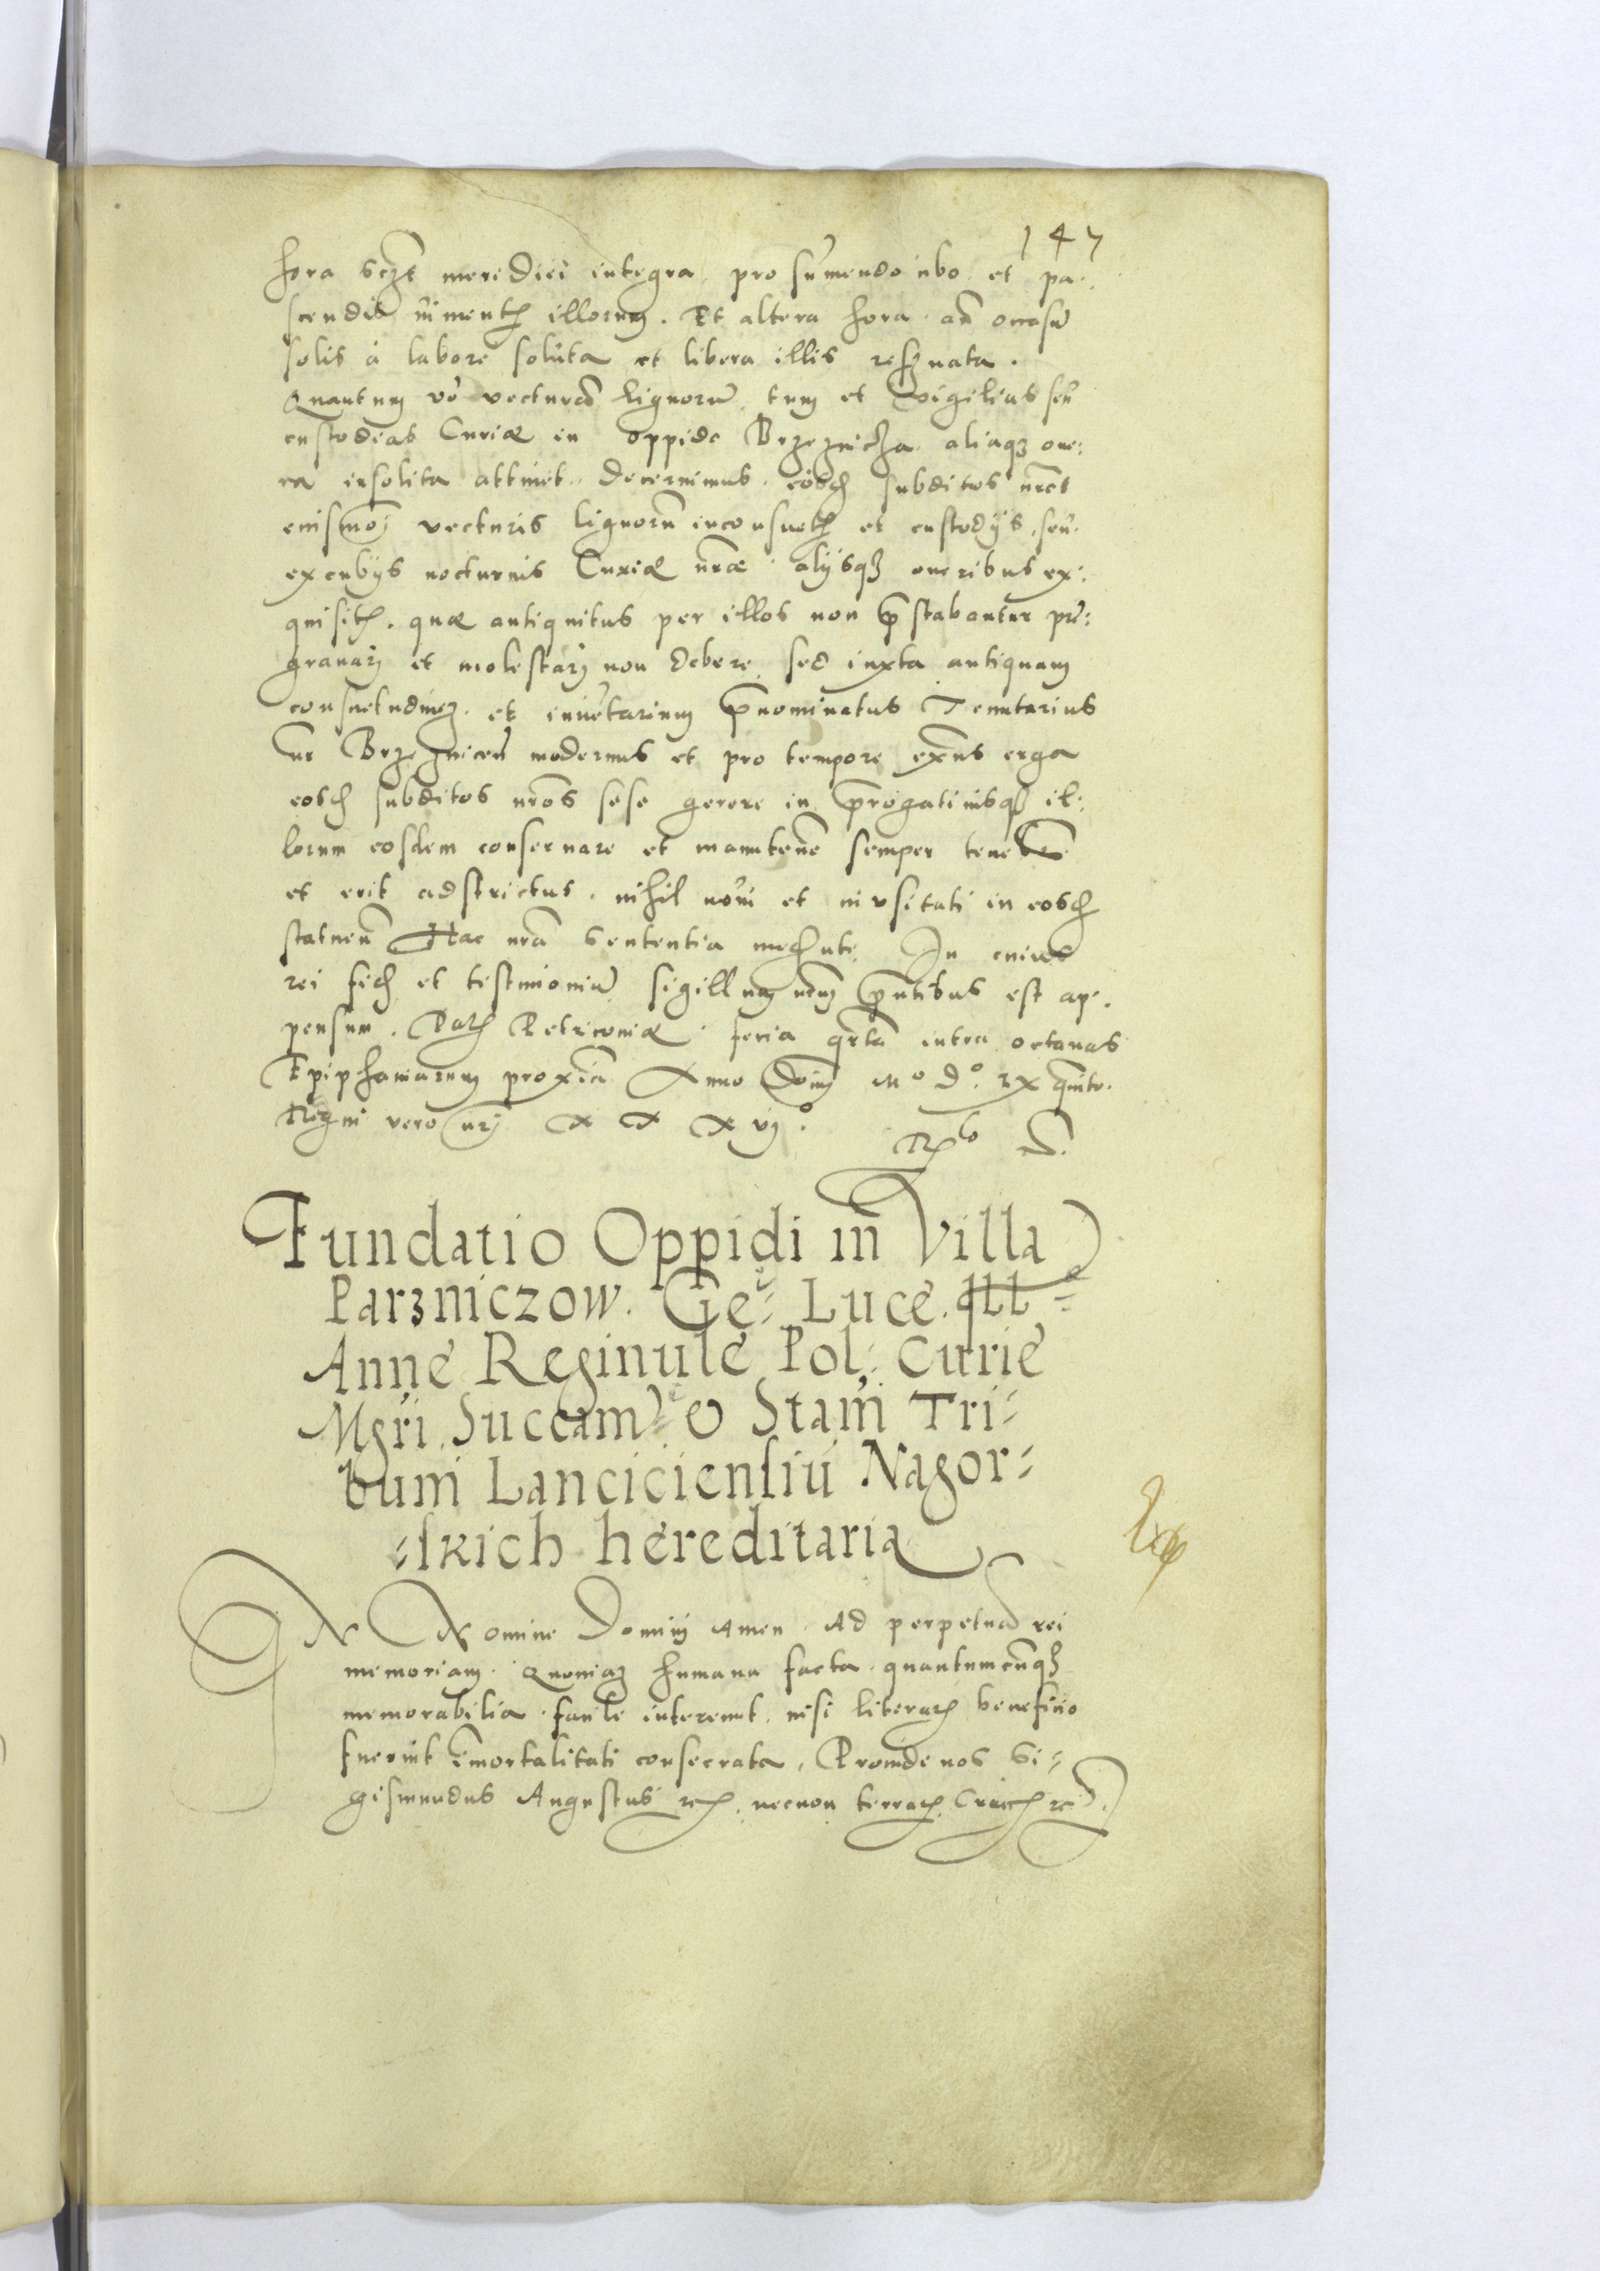 147
hora scʒt meridiei integra pro sumendo cibo et pa:
scendis iumentꝫ illorum. Et altera hora añ occasũ
solis à labore soluta et libera illis reseruata.
Quantum vo vecturas lignorũ tum et vigilias seu
custodias Curiæ in oppido Brzeznicza aliaqʒ one:
ra insolita attinet decernimus eosd subditos nros
eiusmoi vecturis lignorũ inconsuetꝫ et custodijs seu
excubijs nocturnis Curiæ nræ alijsqʒ oneribus ex:
quisitꝫ. quæ antiquitus per illos non pstabantur
grauari et molestari non debere sed iuxta antiquam
consuetudinem et inuẽtarium pnominatus Tenutarius
nr Brzeznicen modernus et pro tempore exñs erga
eosd subditos nros sese gerere in prerogatiuisqʒ il:
lorum eosdem conseruare et manutenere semper
et erit adstrictus. nihil noui et inusitati in eosd
statuen Hac nra sententia mediante In cuius
rei fid et testimoniũ sigillum nrm pntibus est ap:
pensum. Datꝫ Petricouiæ feria qrta intra octauas
Epiphaniarum proxia Anno Dominj Mo Do. LX quinto.
Regni vero nrj XXXVj°
Fundatio Oppidi in Villa
Parzniczow. Ge: Luce. Illꝫ
Anne Reginule Pol: Curie
Mgri. Succam: & Stani Tri:
buni Lanciciensiu Nagor:
:skich hereditaria
IN Nomine Dominj Amen. Ad perpetuã rei
memoriam. Quoniam humana facta quantumcũqʒ
memorabilia facile intereunt nisi literarꝫ beneficio
fuerint immortalitati consecrata, Proinde nos Si:
gismundus Augustus rexꝫ necnon terrarꝫ Cracꝫ etc